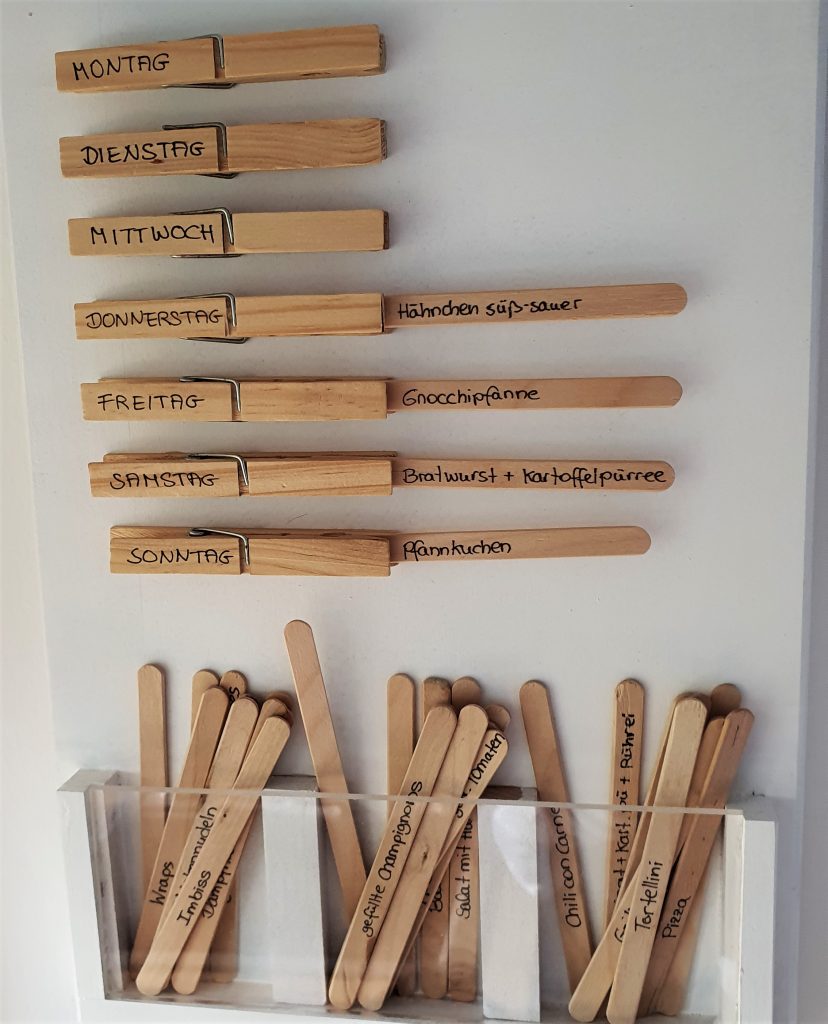 MONTAG
DIENSTAG
MITTWOCH
DONNERSTAG Hähnchen süß-sauer
FREITAG Gnocchipfanne
SAMSTAG Bratwurst + Kartoffelpürree
SONNTAG Pfannkuchen
Wraps
Imbiss
gefüllte Champignons
Tomaten
Salat mit
Chili con Carne
+ Kart. + Rührei
Tortellini
Pizza